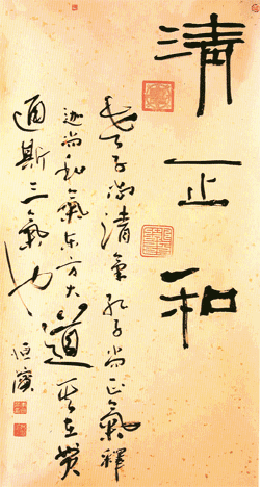 清正和
老子尚清氣孔子尚正氣釋
迦尚和氣東方大道其在貫
通斯三氣也
恒